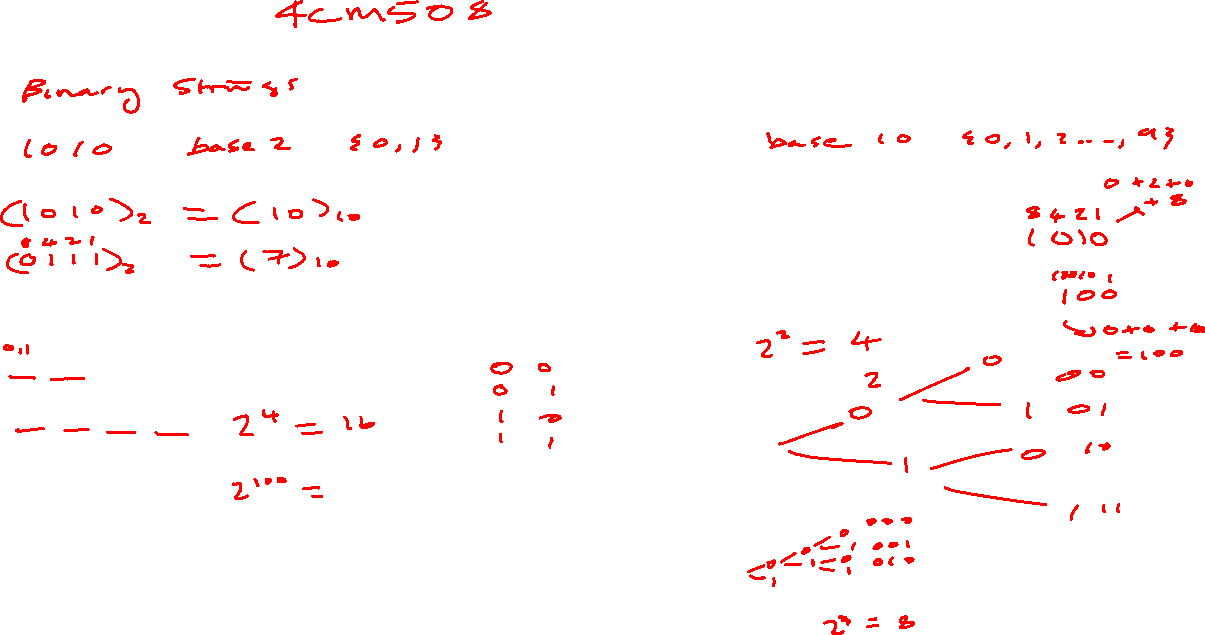 4cm508
Binary Strings
1010 base 2 {0,1}
(1010)₂ = (10)₁₀
8 4 2 1
(0111)₂ = (7)₁₀
0,1
_ _
_ _ _ _ 2⁴ = 16
2¹⁰⁰ =
0 0
0 1
1 0
1 1
base 10 {0,1,2...,9}
0+2+0
+8
8421
1010
100
0+0+
=100
2² = 4
2
0
1
0 00
1 01
0 10
1 11
0 000
0 1 001
0 1 0 010
1 1
2³ = 8